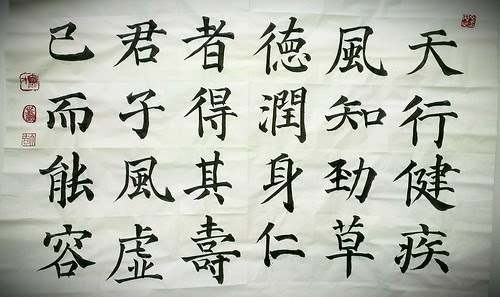 天行健疾
風知勁草
徳潤身仁
者得其壽
君子風虚
己而能容